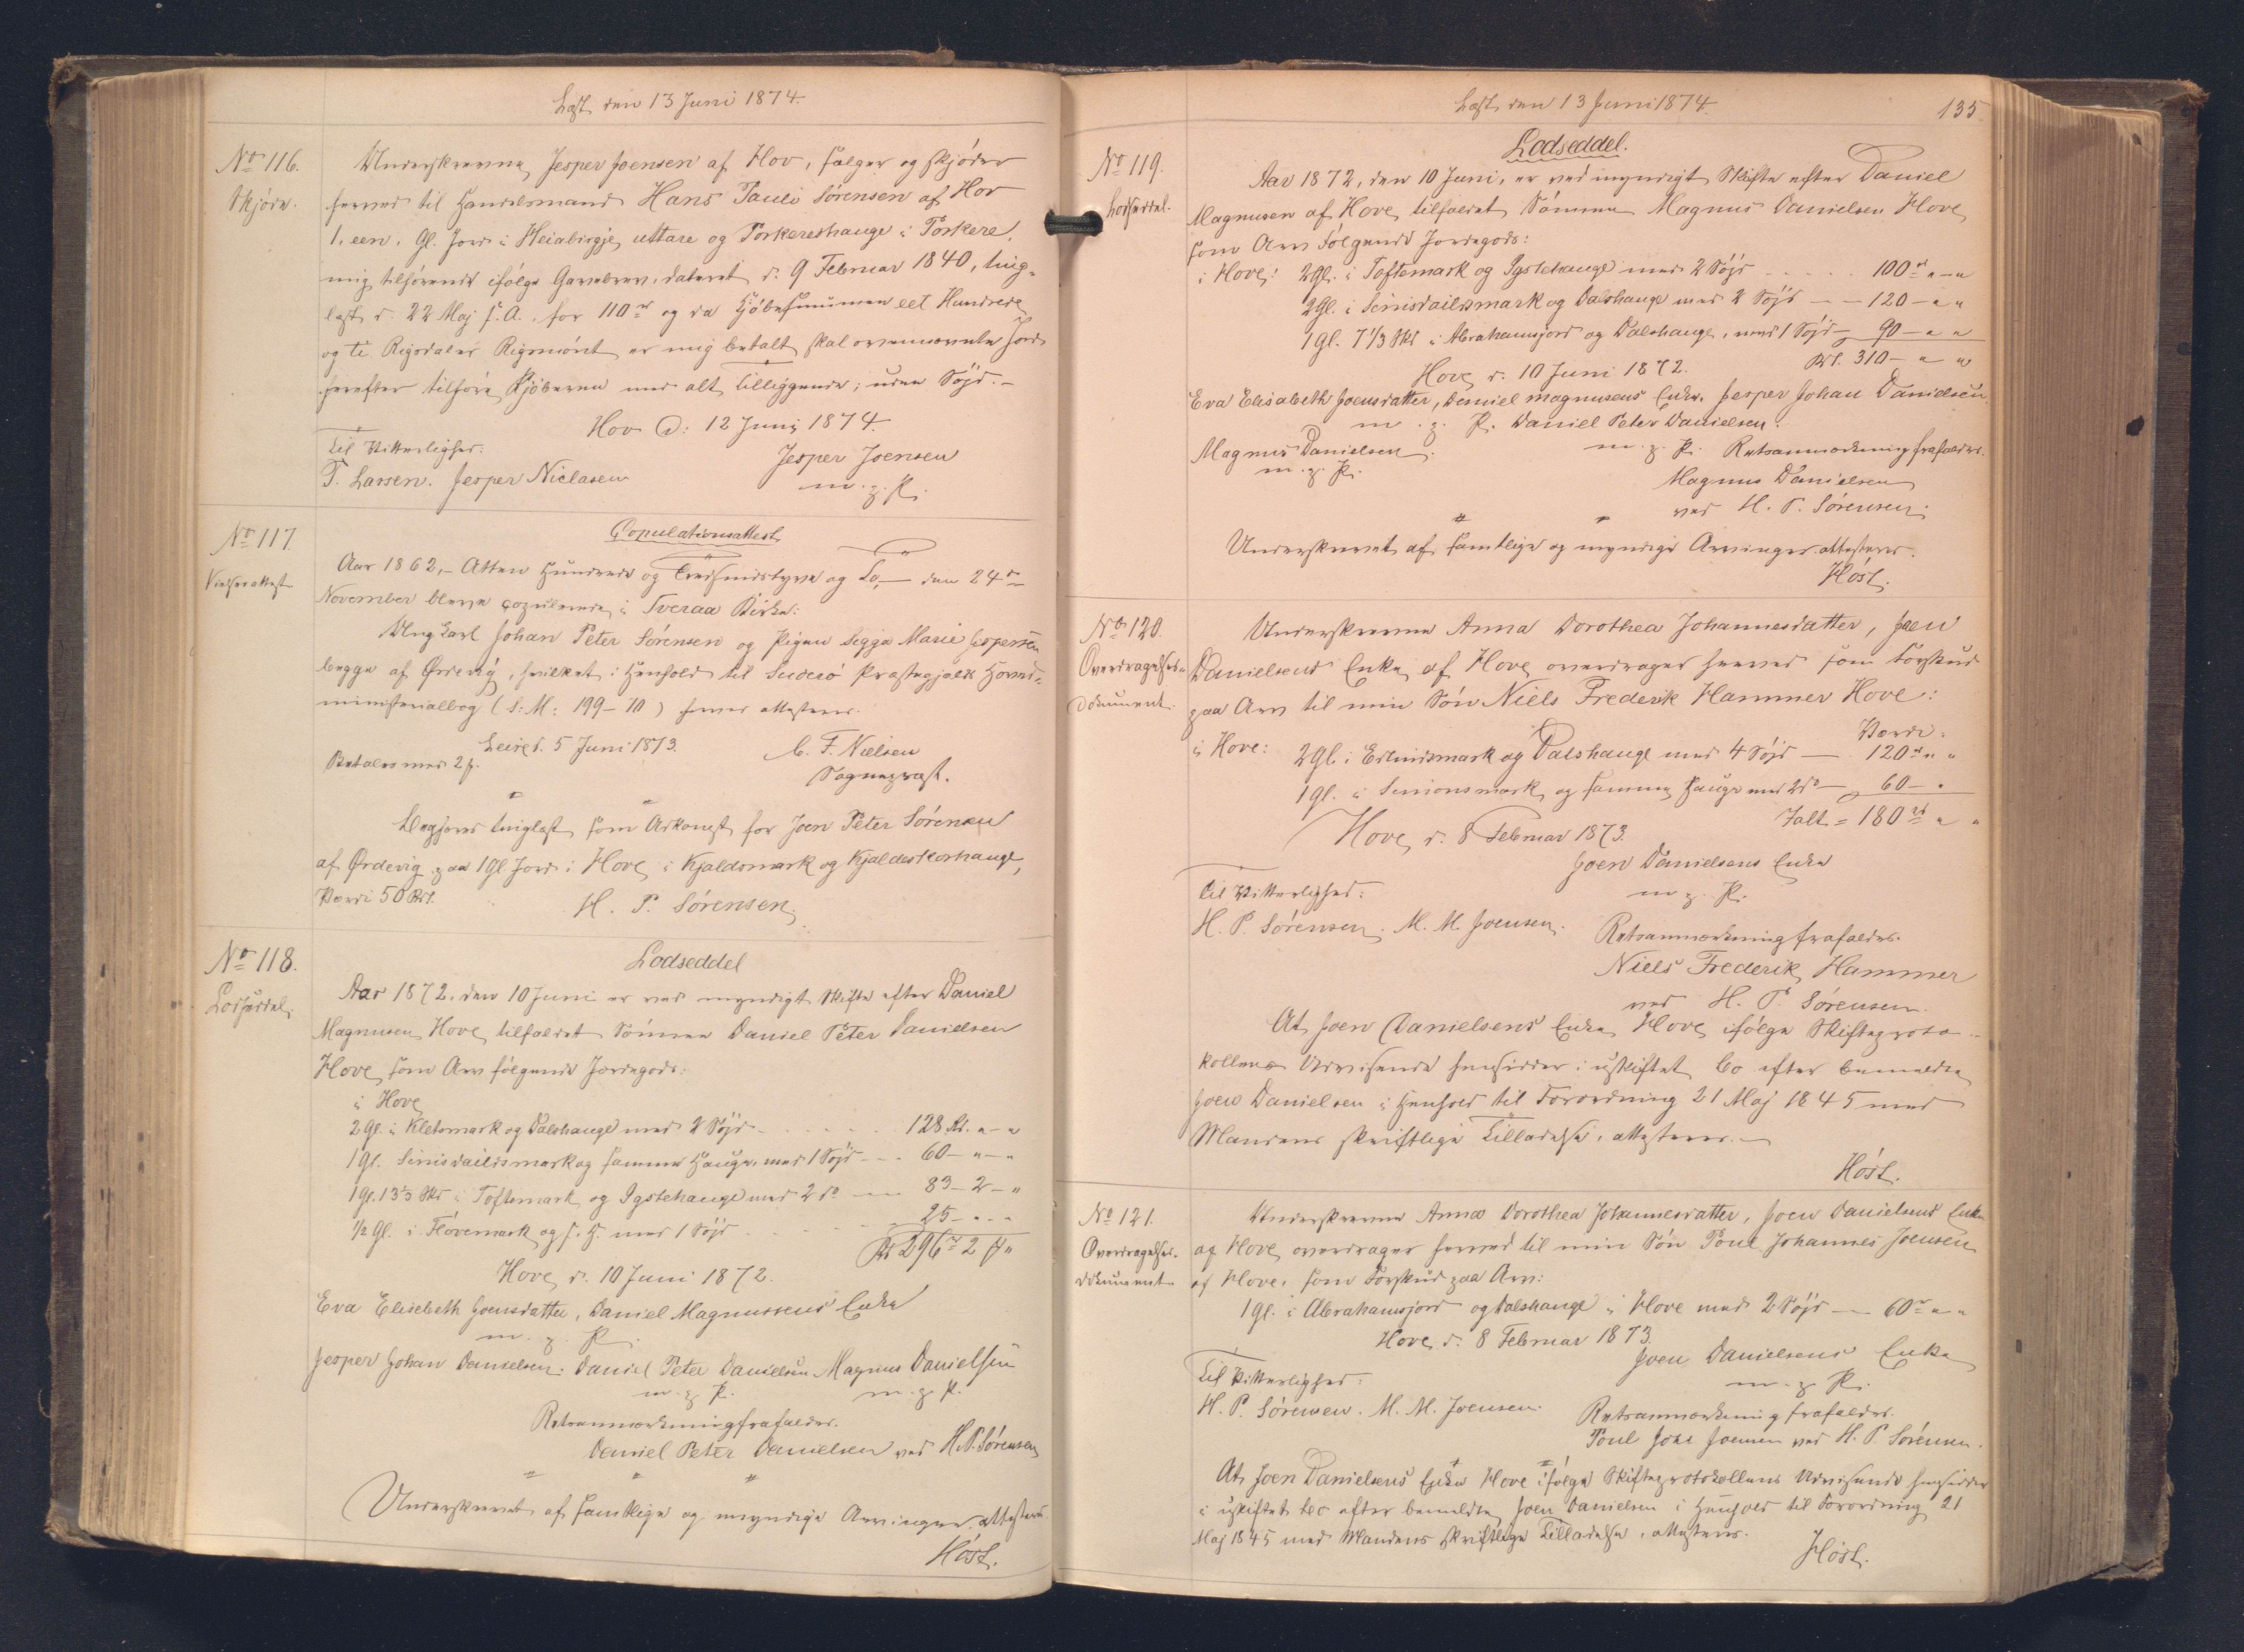 Læst den 13 Juni 1874.
No 116.
Skjøde.
Underskrevne Jesper Joensen af Hov, sælger og skjøder
herved til Handelsmand Hans Pauli Sørensen af Hov
1, een, Gl. Jord i Heiabirgje uttare og Porkereshauge i Porkere,
mig tilhørende ifølge Gavebrev, dateret d. 9 Februar 1840, ting-
læst d. 22 Maj s. A. for 110 rd og da Kjøbesummen eet Hundrede
og ti Rigsdaler Rigsmønt er mig betalt skal ovennævnte Jord
herefter tilhøre Kjøberen med alt Tilliggende, uden Søjd. -
Hov d: 12 Juni 1874.
Til Vitterlighed:
Jesper Joensen
T. Larsen. Jesper Niclasen
m. g. P.
No 117.
Vielsesattest
Copulationsattest
Aar 1862, - Atten Hundrede og Tredsindstyve og To, - den 24de
November bleve copulerede i Tveraa Kirke:
Ungkarl Johan Peter Sørensen og Pigen Sigga Marie Jespersen
begge af Ørdevig, hvilket i Henhold til Suderø Præstegjælds Hoved-
ministerialbog (S: M: 199-10) herved attesteres.
Leire d. 5 Juni 1873.
Betales med 2 s.
C. F. Nielsen
Sognepræst.
Begjæres tinglæst som Adkomst for Joen Peter Sørensen
af Ørdevig paa 1 Gl Jord i Hove i Kjaldsmark og Kjaldeskorhauge,
Værdi 50 Rd.
H. P. Sørensen.
No 118.
Lodseddel.
Lodseddel
Aar 1872, den 10 Juni er ved myndigt Skifte efter Daniel
Magnusen Hove tilfaldet Sønnen Daniel Peter Danielsen
Hove som Arv følgende Jordegods:
i Hove
2 Gl. i Kletsmark og Dalshauge med 2 Søjd - - - - - 128 Rd. " - "
1 Gl. Sinisdailsmark og samme Hauge, med 1 Søjd - - - 60 - " - "
1 Gl. 13 1/3 Skd i Toftemark og Igstehauge med 2 do - - 83 - 2 - "
1/2 Gl. i Fløvemark og s. H. med 1 Søjd - - - - 25 - " - "
Rd 296 rd 2 # "
Hove d. 10 Juni 1872.
Eva Elisebeth Joensdatter, Daniel Magnussens Enke
m. g. P.
Jesper Johan Danielsen. Daniel Peter Danielsen Magnus Danielsen
m. g. P. m. g. P.
Retsanmærkning frafaldes.
Daniel Peter Danielsen ved H. P. Sørensen
Underskrevet af samtlige og myndige Arvinger attesteres.
Høst.
Læst den 13 Juni 1874.
135
No 119.
Lodseddel.
Lodseddel.
Aar 1872, den 10 Juni, er ved myndigt Skifte efter Daniel
Magnusen af Hove tilfaldet Sønnen Magnus Danielsen Hove
som Arv følgende Jordegods:
i Hove: 2 Gl. i Toftemark og Igstehauge med 2 Søjd - - - - - 100 rd " - "
2 Gl. i Sinisdailsmark og Dalshauge med 2 Søjd - - 120 - " "
1 Gl. 7 1/3 Skd i Abrahamsjord og Dalshauge, med 1 Søjd - 90 - " "
Rd. 310 - " "
Hove d. 10 Juni 1872.
Eva Elisabeth Joensdatter, Daniel Magnusens Enke. Jesper Johan Danielsen
m. g. P. Daniel Peter Danielsen
Magnus Danielsen m. g. P. Retsanmærkning frafaldes.
m. g. P.
Magnus Danielsen
ved H. P. Sørensen.
Underskrevet af samtlige og myndige Arvinger attesteres.
Høst.
No 120.
Overdragelses-
dokument.
Underskrevne Anna Dorothea Johannesdatter, Joen
Danielsens Enke af Hove overdrager herved som Forskud
paa Arv til min Søn Niels Frederik Hammer Hove:
Værdi.
i Hove: 2 Gl. i Erlendsmark og Dalshauge med 4 Søjd - 120 rd " "
1 Gl. i Simonsmark og samme Hauge med 2 do - 60 - "
Ialt = 180 rd " "
Hove d. 8 Februar 1873.
Joen Danielsens Enke
Til Vitterlighed:
m. g. P.
H. P. Sørensen. M. M. Joensen.
Retsanmærkning frafaldes.
Niels Frederik Hammer
ved H. P. Sørensen.
At Joen Danielsens Enke Hove ifølge Skifteproto-
kollens Udvisende hensidder i uskiftet Bo efter bemeldte
Joen Danielsen i Henhold til Forordning 21 Maj 1845 med
Mandens skriftlige Tilladelse, attesteres. -
Høst.
No 121.
Overdragelses-
dokument.
Underskrevne Anna Dorothea Johannesdatter, Joen Danielsens Enke
af Hove overdrager herved til min Søn Poul Johannes Joensen
af Hove, som Forskud paa Arv:
1 Gl. i Abrahamsjord og Dalshauge i Hove med 2 Søjd - 60 rd " "
Hove d. 8 Februar 1873.
Joen Danielsens Enke
Til Vitterlighed:
m. g. P.
H. P. Sørensen. M. M. Joensen.
Retsanmærkning frafaldes.
Poul Johs Joensen ved H. P. Sørensen.
At Joen Danielsens Enke Hove ifølge Skifteprotokollens Udvisende hensidder
i uskiftet Bo efter bemeldte Joen Danielsen i Henhold til Forordning 21
Maj 1845 med Mandens skriftlige Tilladelse, attesteres.
Høst.